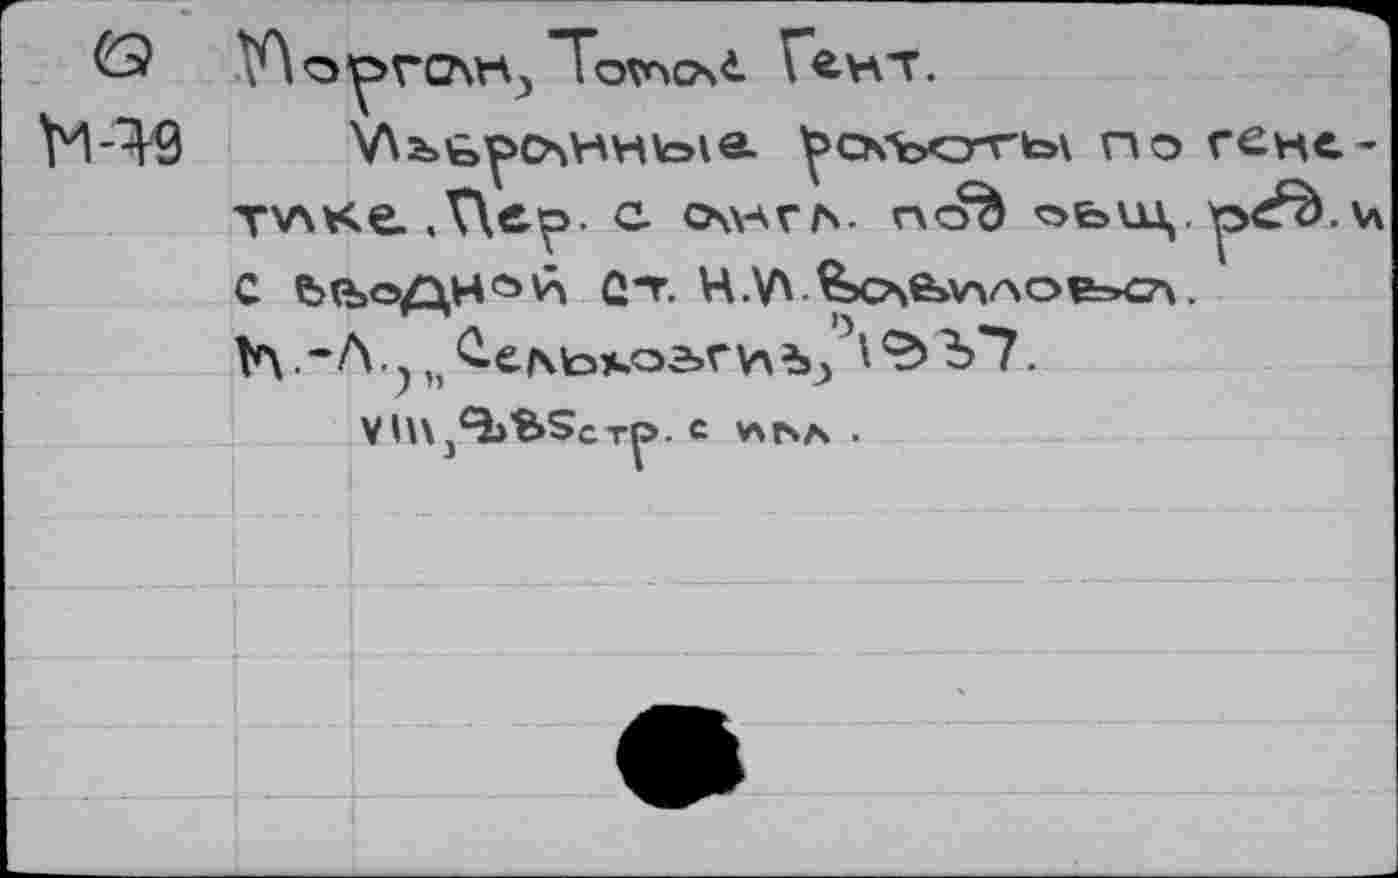 Б Морган, Томас Гент.
М-79 Избранные работы по гене-
тике. Пер. с англ. под общ. ред. и
с вводной ст. Н.И. Вавилова.
М.-Л., „Сельхозгиз", 1937.
VIII, 285 стр. с илл.